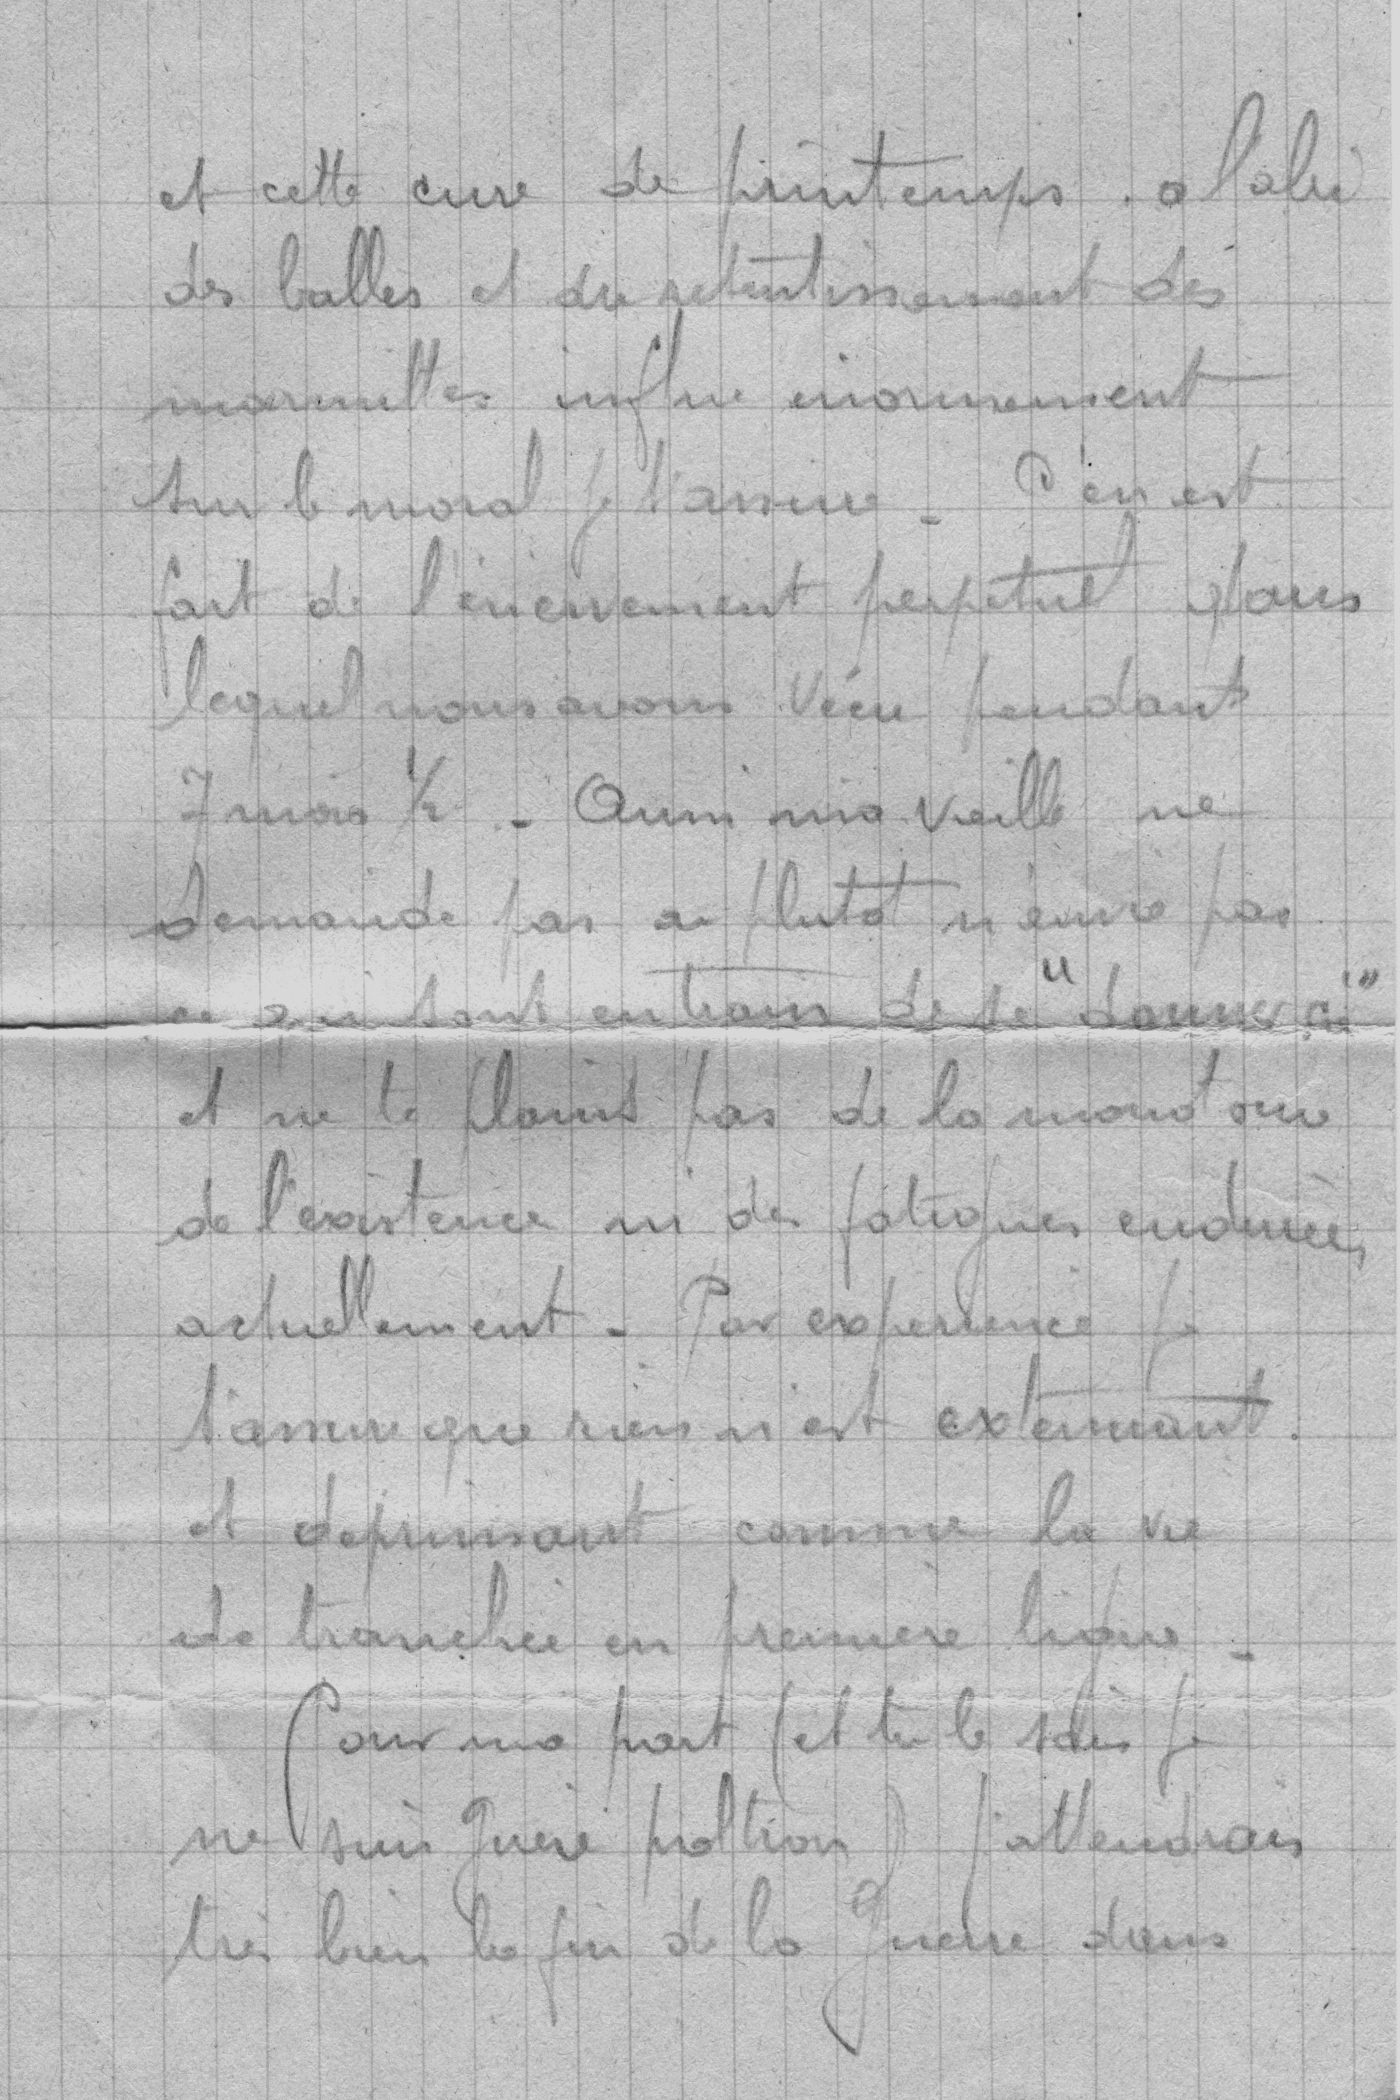 et cette cure de printemps. a l'abri
des balles et du retentissement des
marmittes influe enormement
sur le moral je t'assure - C'en est
fait de l'enervement perpetuel dans
lequel nous avons vécu pendant
7 mois 1/2 - Aussi ma vieille ne
demande pas ou plutot n'envie pas
ce qui sont en train de se "donner
et ne te plains pas de la monotonie
de l'existence ni des fatigues endurées
actuellement - Par experience je
t'assure que rien n'est extenuant.
et deprimant comme la vie
de tranchée en premiere ligne -
Pour ma part (et tu le sais je
ne suis guère poltron) j'attendrais
très bien la fin de la guerre dans